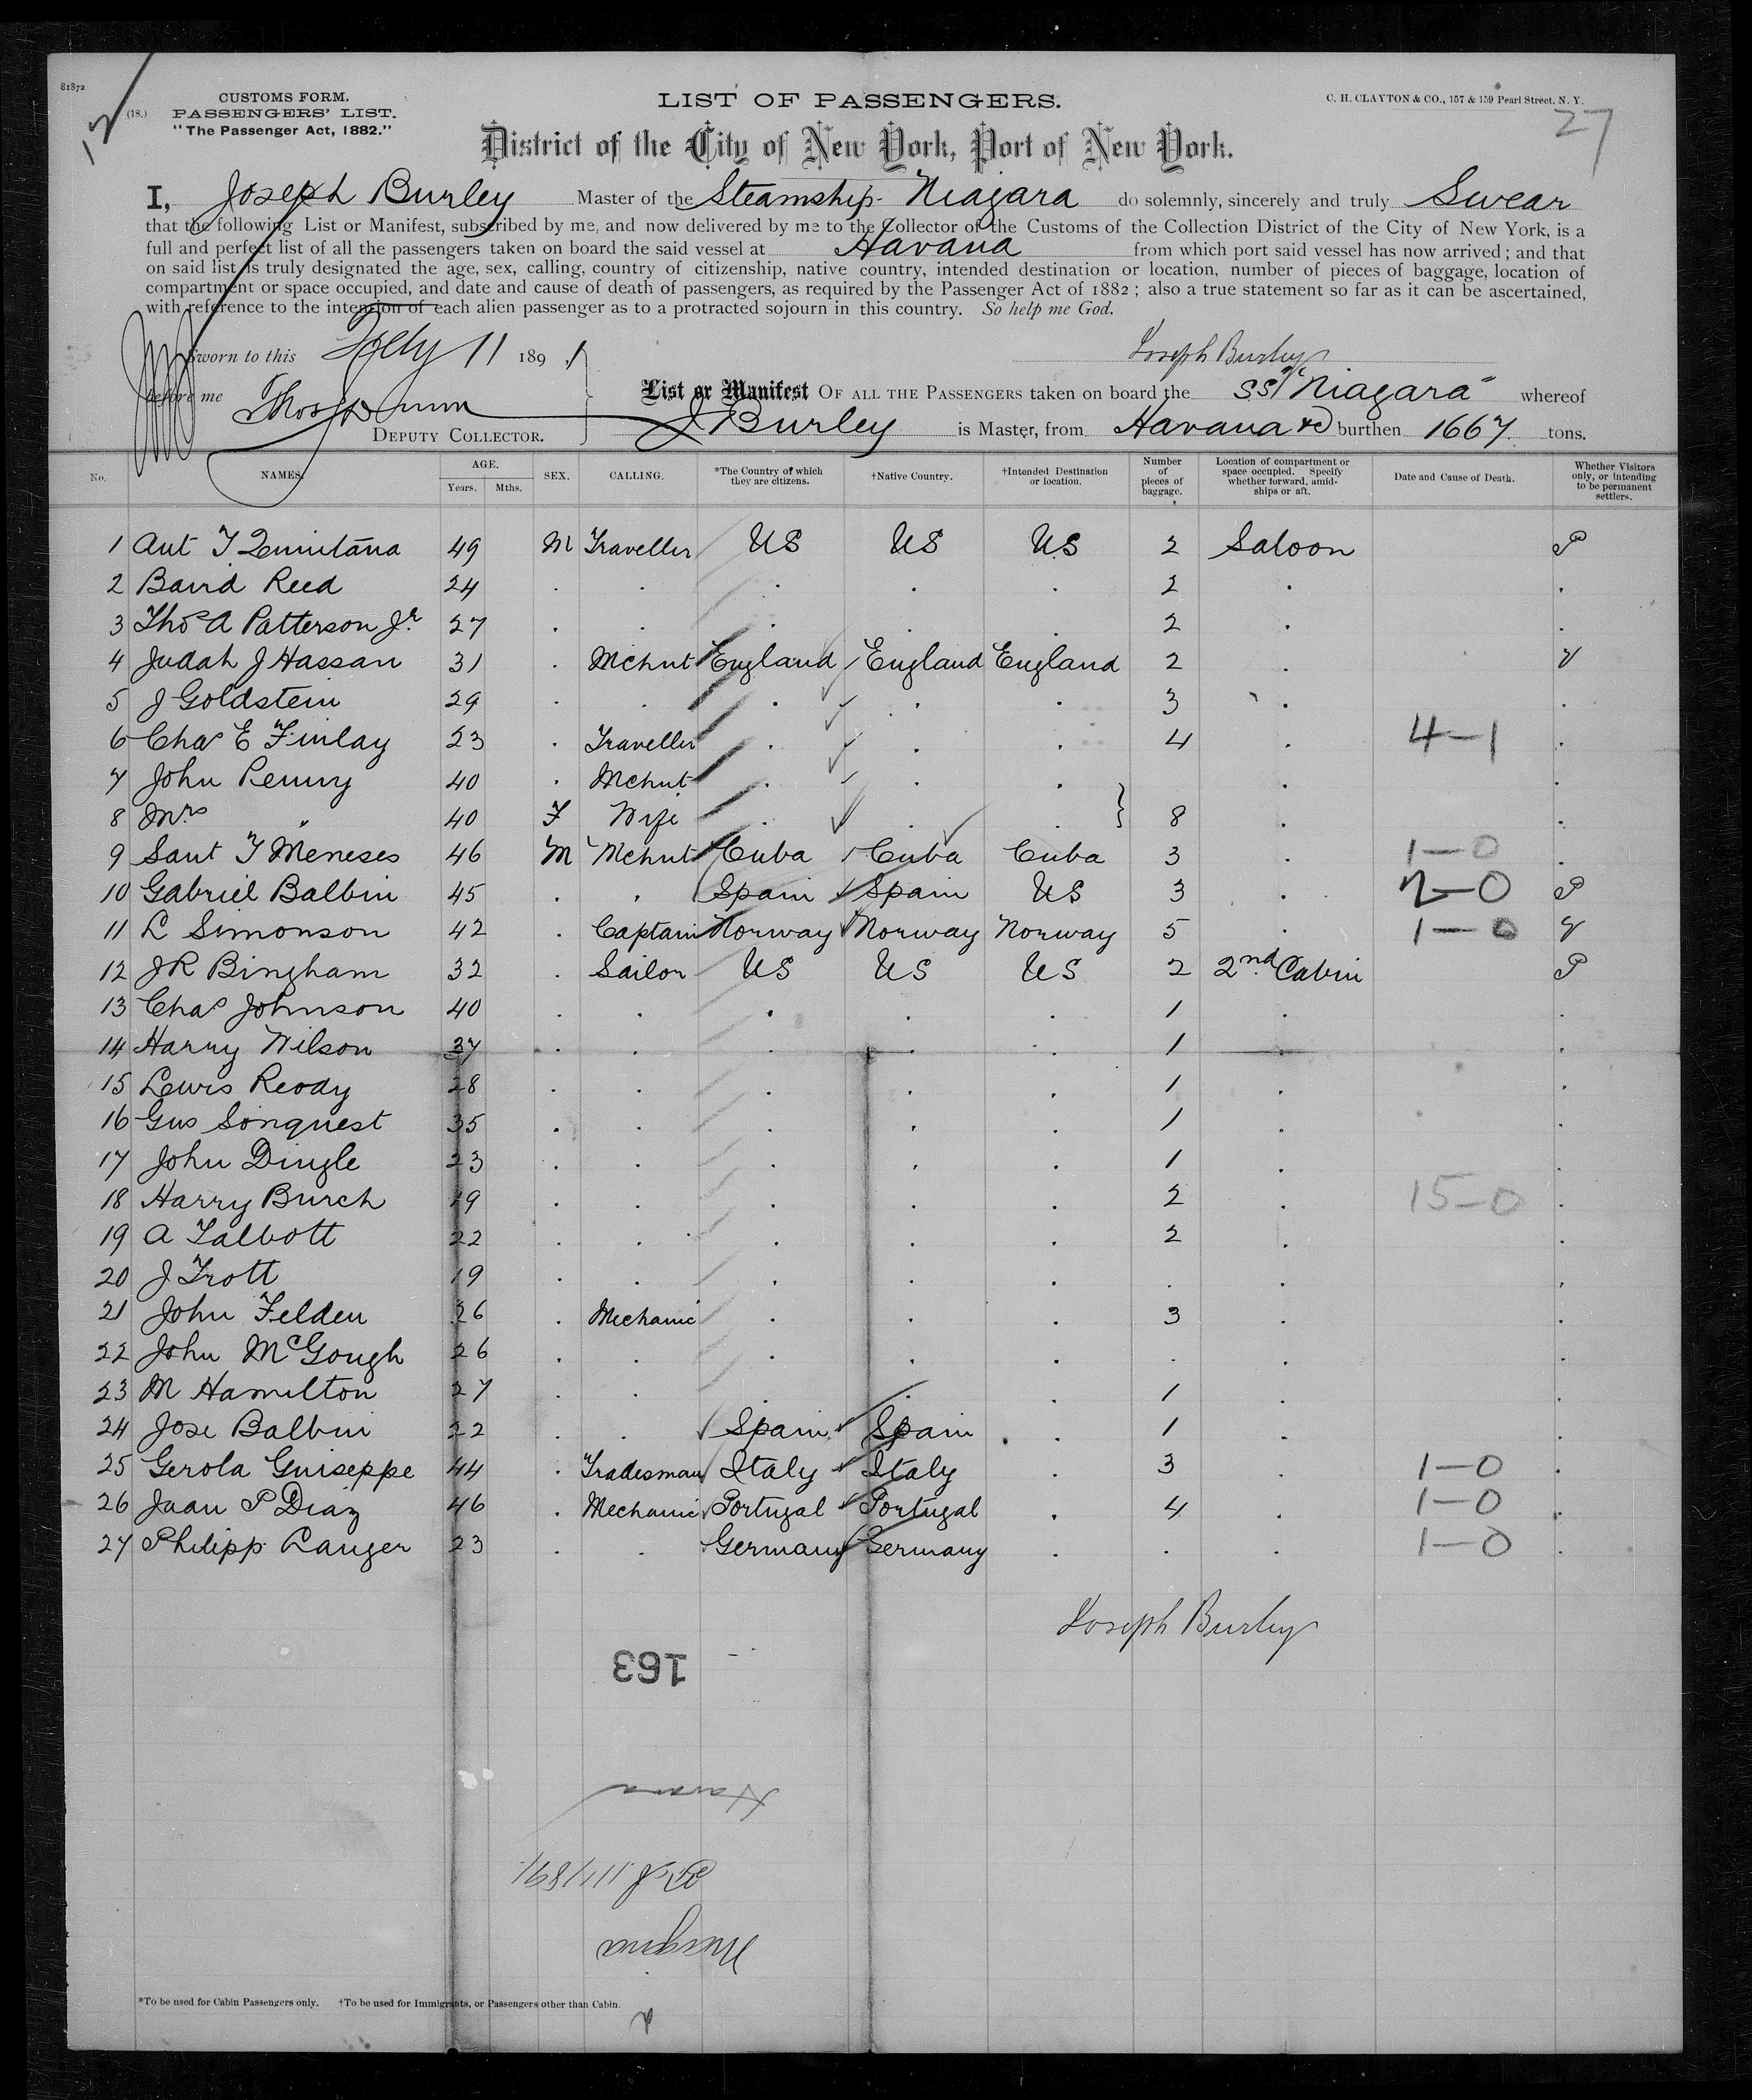 81872
12
(18.)
CUSTOMS FORM.
PASSENGERS' LIST.
"The Passenger Act, 1882."
LIST OF PASSENGERS.
C. H. CLAYTON & CO., 157 & 159 Pearl Street, N. Y.
27
District of the City of New York, Port of New York.
I, Joseph Burley Master of the Steamship Niagara do solemnly, sincerely and truly Swear
that the following List or Manifest, subscribed by me, and now delivered by me to the Collector of the Customs of the Collection District of the City of New York, is a
full and perfect list of all the passengers taken on board the said vessel at Havana from which port said vessel has now arrived; and that
on said list is truly designated the age, sex, calling, country of citizenship, native country, intended destination or location, number of pieces of baggage, location of
compartment or space occupied, and date and cause of death of passengers, as required by the Passenger Act of 1882; also a true statement so far as it can be ascertained,
with reference to the intention of each alien passenger as to a protracted sojourn in this country. So help me God.
Sworn to this Feby 11 1891
Joseph Burley
before me
DEPUTY COLLECTOR.
List or Manifest OF ALL THE PASSENGERS taken on board the SS "Niagara" whereof
J Burley is Master, from Havana burthen 1667 tons.
No. NAMES. AGE. Years. Mths. SEX. CALLING. *The Country of which they are citizens. †Native Country. †Intended Destination or location. Number of pieces of baggage. Location of compartment or space occupied. Specify whether forward, amidships or aft. Date and Cause of Death. Whether Visitors only, or intending to be permanent settlers.
1 Ant F Quintana 49 M Traveller US US US 2 Saloon P
2 Baird Reed 24 . . . . . 2 . .
3 Thos A Patterson Jr 27 . . . . . 2 . .
4 Judah J Hassan 31 . Mchnt England England England 2 . V
5 J Goldstein 29 . . . . . 3 . .
6 Chas E Finlay 23 . Traveller . . . 4 . 4-1 .
7 John Penny 40 . Mchnt . . . . .
8 Mrs " 40 F Wife . . . } 8 . .
9 Sant F Meneses 46 M Mchnt Cuba Cuba Cuba 3 . 1-0 .
10 Gabriel Balbin 45 . . Spain Spain US 3 . 2-0 P
11 L Simonson 42 . Captain Norway Norway Norway 5 . 1-0 V
12 J R Bingham 32 . Sailor US US US 2 2nd Cabin P
13 Chas Johnson 40 . . . . . 1 . .
14 Harry Wilson 37 . . . . . 1 . .
15 Lewis Reody 28 . . . . . 1 . .
16 Gus Sonquest 35 . . . . . 1 . .
17 John Dingle 23 . . . . . 1 . .
18 Harry Burch 29 . . . . . 2 . 15-0 .
19 A Talbott 22 . . . . . 2 . .
20 J Trott 19 . . . . . . . .
21 John Felden 26 . Mechanic . . . 3 . .
22 John McGough 26 . . . . . . . .
23 M Hamilton 27 . . . . . 1 . .
24 Jose Balbin 22 . . Spain Spain . 1 . .
25 Gerola Guiseppe 44 . Tradesman Italy Italy . 3 . 1-0 .
26 Juan P Diaz 46 . Mechanic Portugal Portugal . 4 . 1-0 .
27 Philipp Langer 23 . . Germany Germany . . . 1-0 .
Joseph Burley
163
Havana
11/1891
Niagara
*To be used for Cabin Passengers only. †To be used for Immigrants, or Passengers other than Cabin.